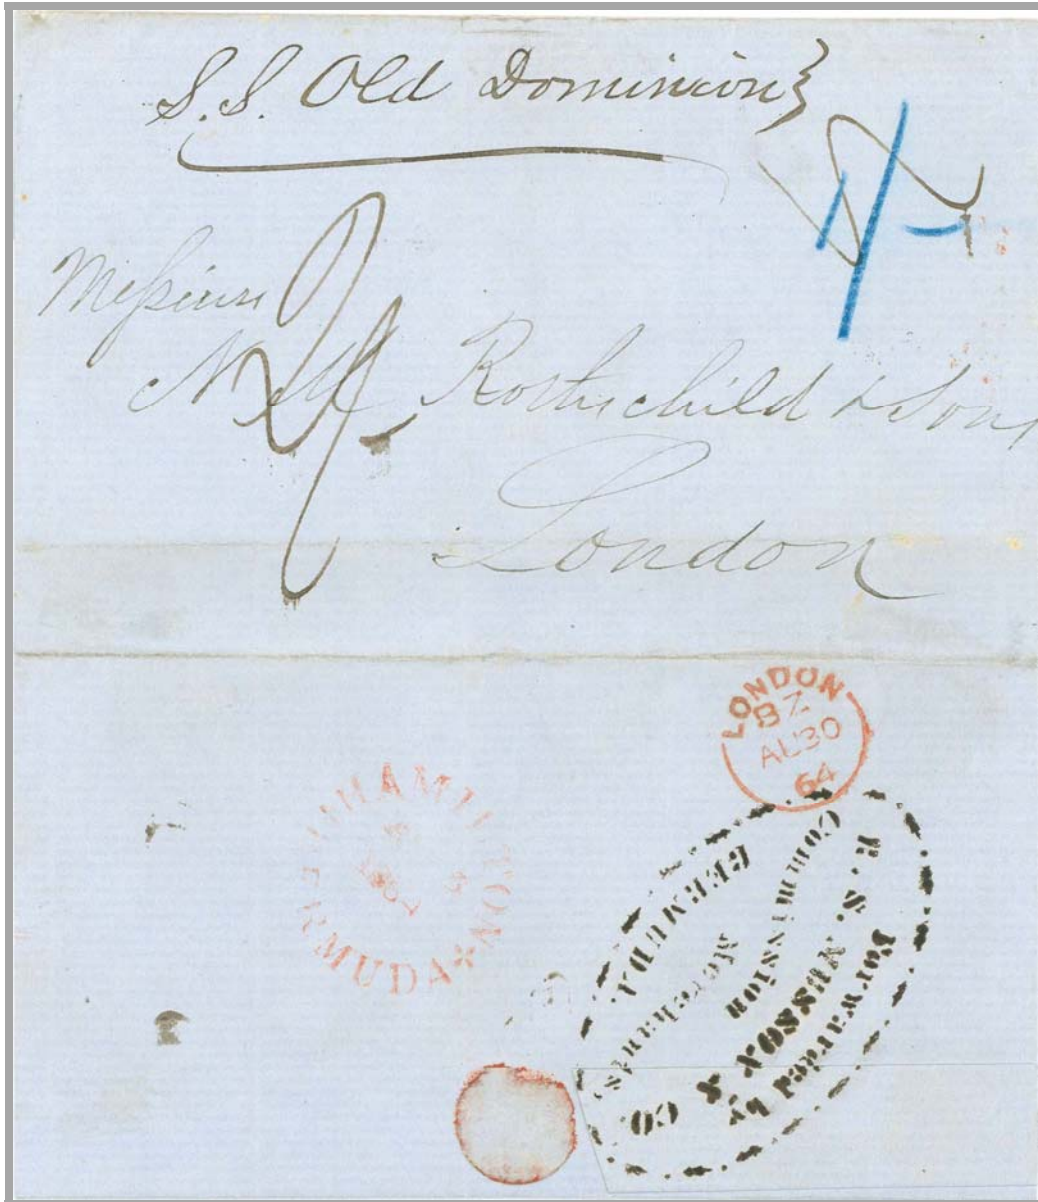 S.S. Old Dominion
1/-
2/
Messieurs
N M Rothschild & Sons
London
LONDON
BZ
AU 30
64
HAMILTON
BERMUDA
Forwarded by
R. S. MUSSON & CO
Commission
Merchants
BERMUDA.